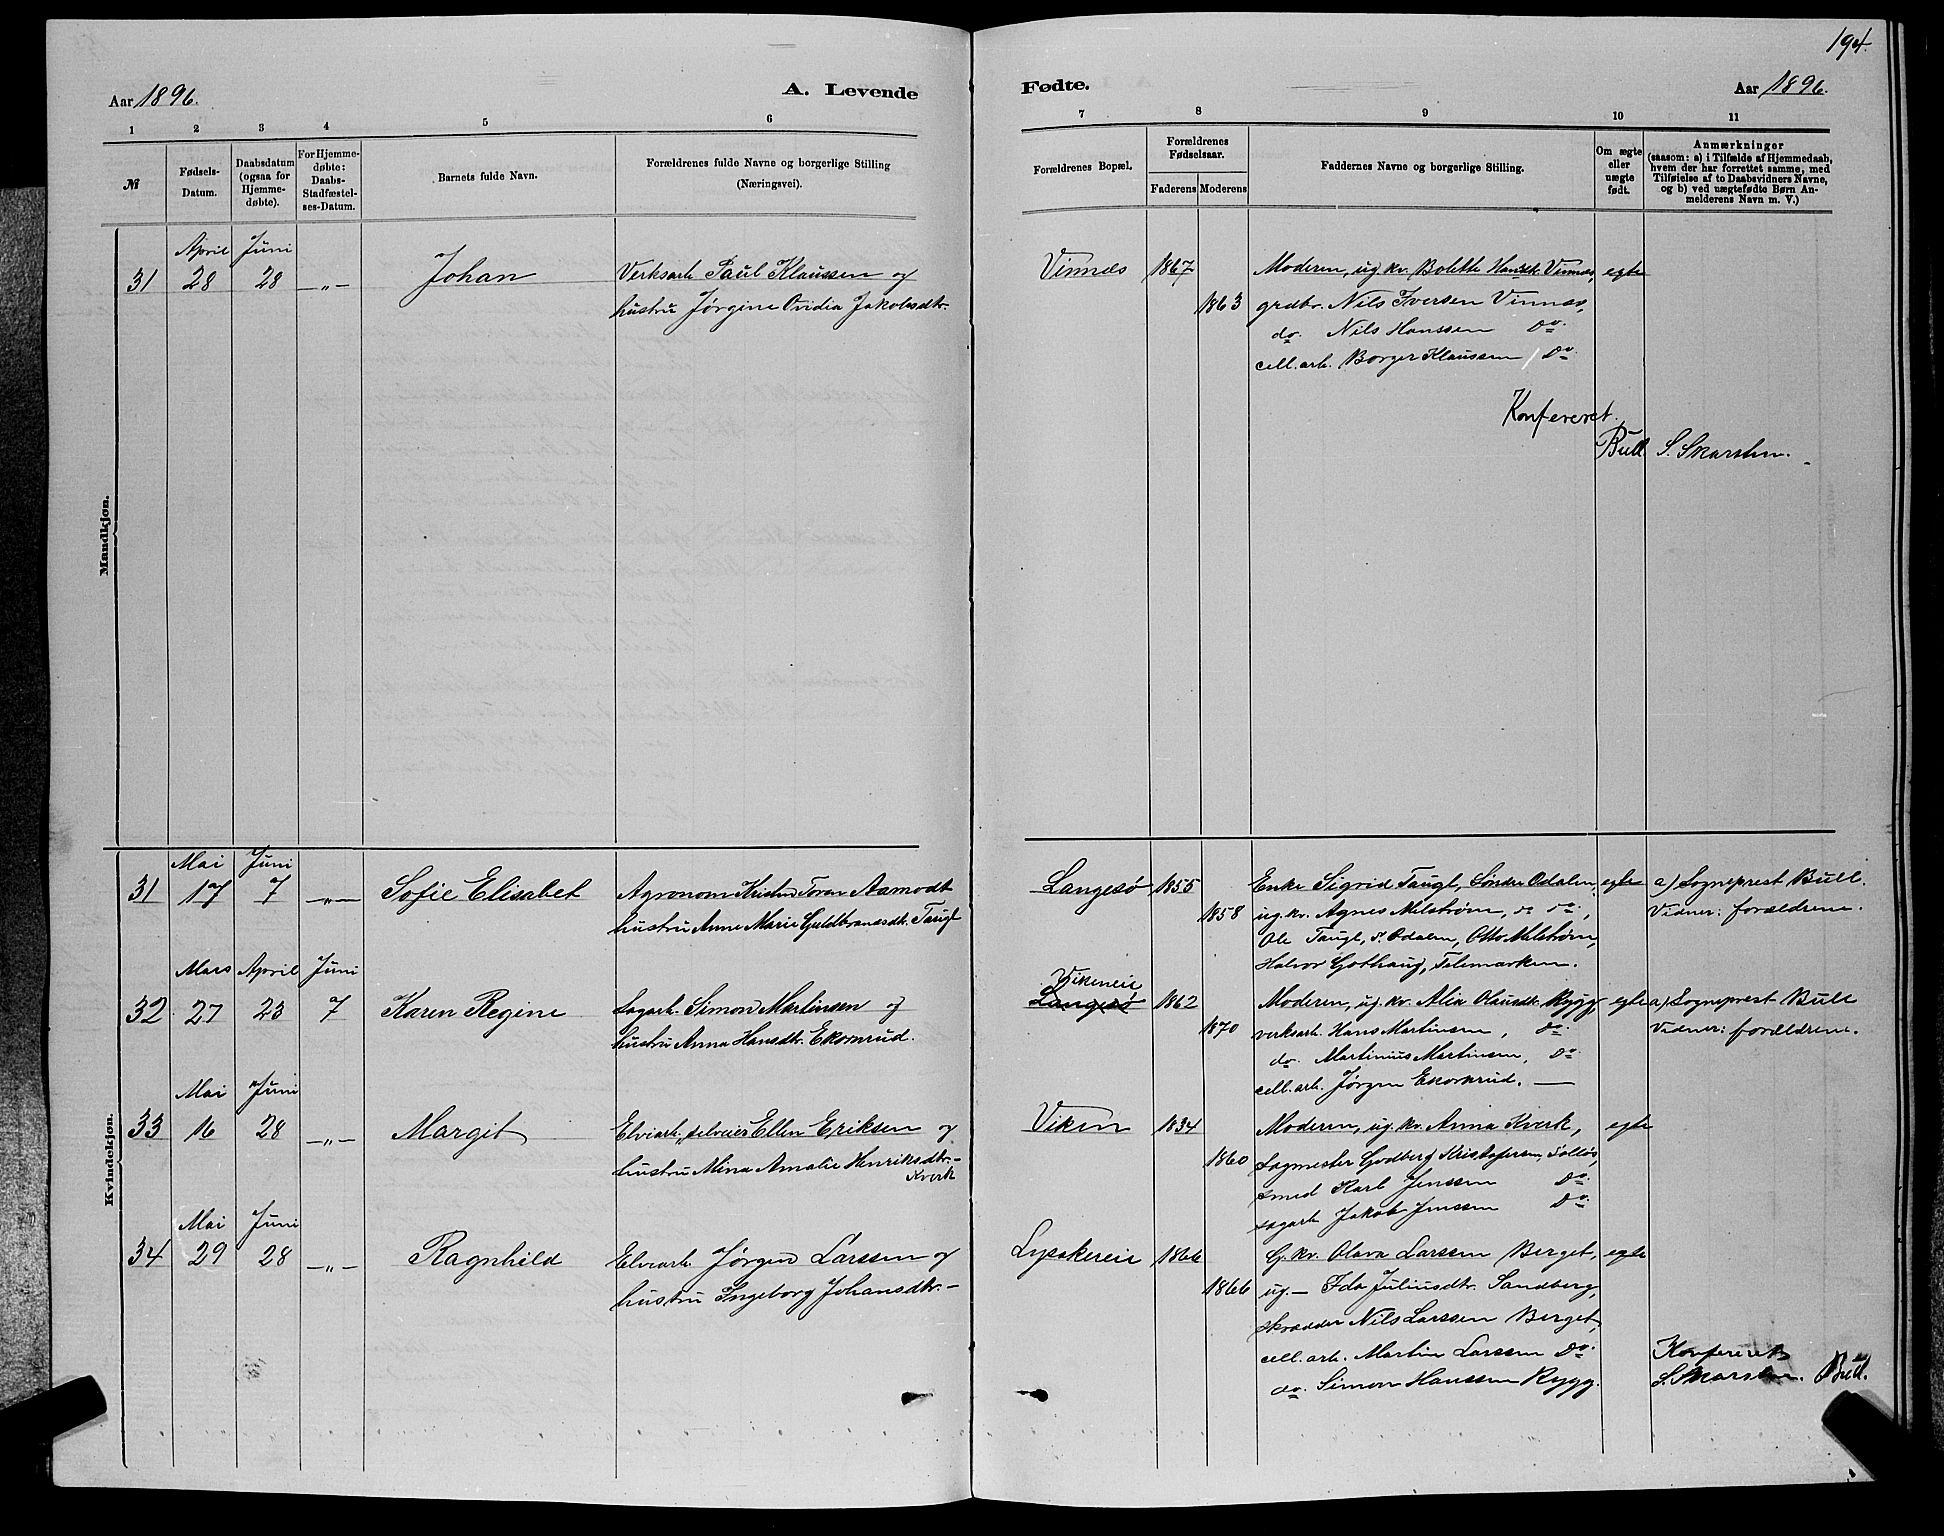 194.
Aar 1896.
A. Levende
Fødte.
Aar 1896.
1 2 3 4 5 6 7 8 9 10 11
№
Fødsels-
Datum.
Daabsdatum
(ogsaa for
Hjemme-
døbte).
For Hjemme-
døbte:
Daabs-
Stadfæstel-
ses-Datum.
Barnets fulde Navn.
Forældrenes fulde Navne og borgerlige Stilling
(Næringsvei).
Forældrenes Bopæl.
Forældrenes
Fødselsaar.
Faderens Moderens
Faddernes Navne og borgerlige Stilling.
Om ægte
eller
uægte
født.
Anmærkninger
(saasom: a) i Tilfælde af Hjemmedaab,
hvem der har forrettet samme, med
Tilføielse af to Daabsvidners Navne,
og b) ved uægtefødte Børn An-
melderens Navn m. V.)
Mandkjøn.
April Juni
31 28 28 —„— Johan
Verksarb. Paul Klaussen og
hustru Jørgine Ovidia Jakobsdtr.
Vinnæs 1867
1863
Moderen, ug. kv. Bolette Hansdtr. Vinnæs, egte
grdbr. Nils Iversen Vinnæs,
do. Nils Hanssen Do.
cell. arb. Borger Klaussen Do.
Konfereret.
Bull S. Skarsten.
Kvindekjøn.
Mai Juni
31 17 7 —„— Sofie Elisabet
Agronom Kristen Toren Aamodt
hustru Anne Marie Guldbrandsdtr. Taugl
Langesø 1855
1858
Enke Sigrid Taugl, Søndre Odalen, egte
ug. kv. Agnes Milstrøm, do.,
Ole Taugl, S. Odalen, Otto Milstrøm,
Halvor Gothaug, Telemarken.
a) Sogneprest Bull.
Vidner: forældrene.
Mars April Juni
32 27 23 7 Karen Regine
Sagarb. Simon Martinsen og
hustru Anna Hansdtr. Ekornrud.
Vikeneie
Langesø 1862
1870
Moderen, ug. kv. Alia Olausdtr. Rygg, egte
verksarb. Hans Martinsen, do.
do. Martinius Martinsen, Do.
cell. arb. Jørgen Ekornrud. —
a) Sogneprest Bull
Vidner: forældrene.
Mai Juni
33 16 28 —„— Margit
Elvearb., selveier Ellen Eriksen og
hustru Mina Amalie Henriksdtr.-
Kverk
Viken 1834
1860
Moderen, ug. kv. Anna Kverk, egte
sagmester Godberg Kristofersen,
smed Karl Jenssen Do.
sagarb. Jakob Jenssen Do.
Mai Juni
34 29 28 —„— Ragnhild
Elvearb. Jørgen Larssen og
hustru Ingeborg Johansdtr.-
Lysakereie 1866
1866
G. kv. Olava Larssen Berget, egte
ug. — Ida Juliusdtr. Sandberg,
skrædder Nils Larssen Berget,
cell. arb. Martin Larssen Do.
do. Simon Hanssen Rygg.
Konfereret
S. Skarsten. Bull.